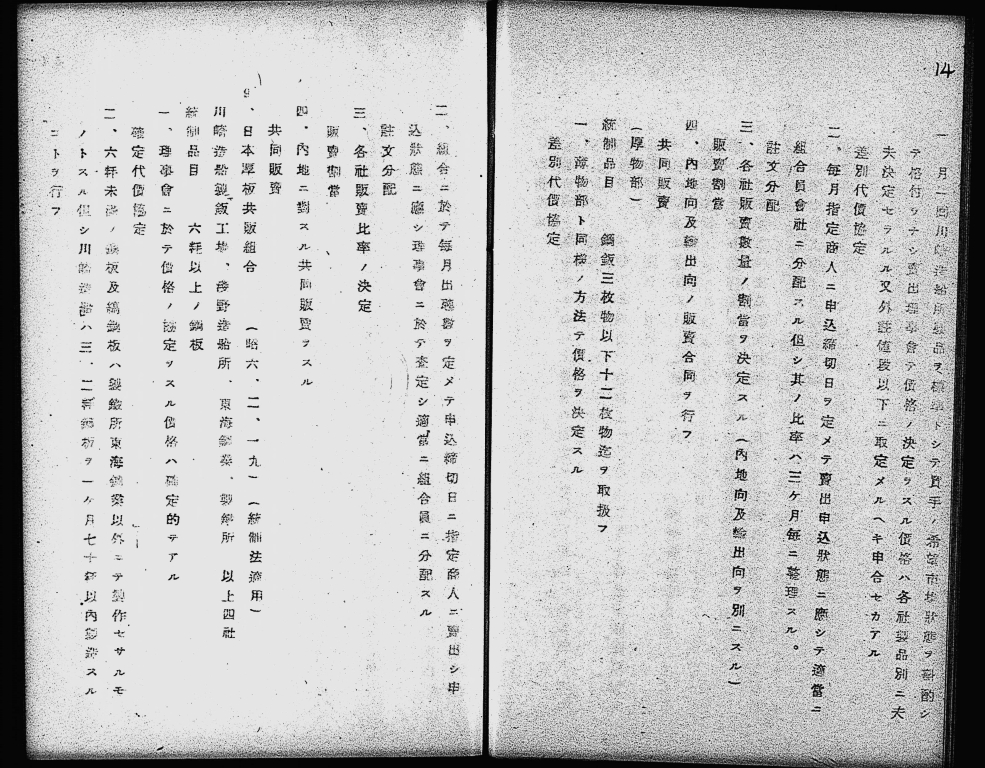 14
一、月一回川崎造船所製品ヲ標準トシテ買手ノ希望市場狀態ヲ斟酌シ
テ格付ヲナシ賣出理事會テ價格ノ決定ヲスル價格ハ各社製品別ニ夫
夫決定セラルル又外註値段以下ニ取定メルヘキ申合セカアル
差別代價協定
二、毎月指定商人ニ申込締切日ヲ定メテ賣出申込狀態ニ應シテ適當ニ
組合員會社ニ分配スル但シ其ノ比率ハ三ケ月毎ニ整理スル。
註文分配
三、各社販賣數量ノ割當ヲ決定スル(內地向及輸出向ヲ別ニスル)
販賣割當
四、內地向及輸出向ノ販賣合同ヲ行フ
共同販賣
(厚物部)
統制品目　鋼鈑三枚物以下十二枚物迄ヲ取扱フ
一、薄物部ト同樣ノ方法テ價格ヲ決定スル
差別代價協定
二、組合ニ於テ毎月出噸數ヲ定メテ申込締切日ニ指定商人ニ賣出シ申
込狀態ニ應シ理事會ニ於テ査定シ適當ニ組合員ニ分配スル
註文分配
三、各社販賣比率ノ決定
販賣割當
四、內地ニ對スル共同販賣ヲスル
共同販賣
9、日本厚板共販組合　(昭六、二、一九)(統制法適用)
川崎造船製鈑工場、淺野造船所、東海鋼業、製鐵所　以上四社
統制品目　六粍以上ノ鋼板
一、理事會ニ於テ價格ノ協定ヲスル價格ハ確定的テアル
確定代價協定
二、六粍未滿ノ鋼板及縞鋼板ハ製鐵所東海鋼業以外ニテ製作セサルモ
ノトスル但シ川崎造船ハ三、二粍鋼板ヲ一ケ月七十粁以內製造スル
コトヲ行フ